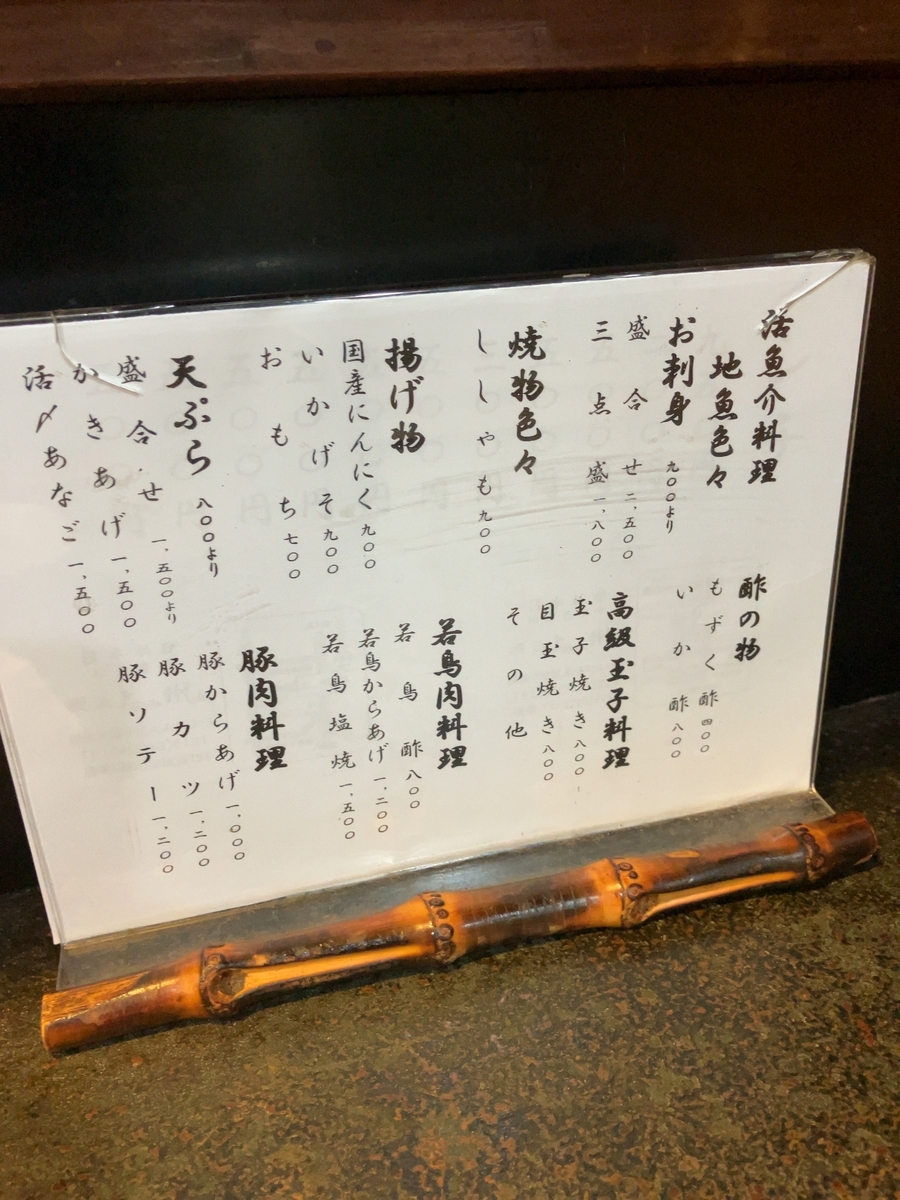 活魚介料理
地魚色々
お刺身 九〇〇より
盛合せ 二,五〇〇
三点盛 一,八〇〇
焼物色々
ししゃも 九〇〇
揚げ物
国産にんにく 九〇〇
いかげそ 九〇〇
おもち 七〇〇
天ぷら 八〇〇より
盛合せ 一,五〇〇より
かきあげ 一,五〇〇
活〆あなご 一,五〇〇
酢の物
もずく酢 四〇〇
いか酢 八〇〇
高級玉子料理
玉子焼き 八〇〇
目玉焼き 八〇〇
その他
若鳥肉料理
若鳥酢 八〇〇
若鳥からあげ 一,二〇〇
若鳥塩焼 一,五〇〇
豚肉料理
豚からあげ 一,〇〇〇
豚カツ 一,二〇〇
豚ソテー 一,二〇〇